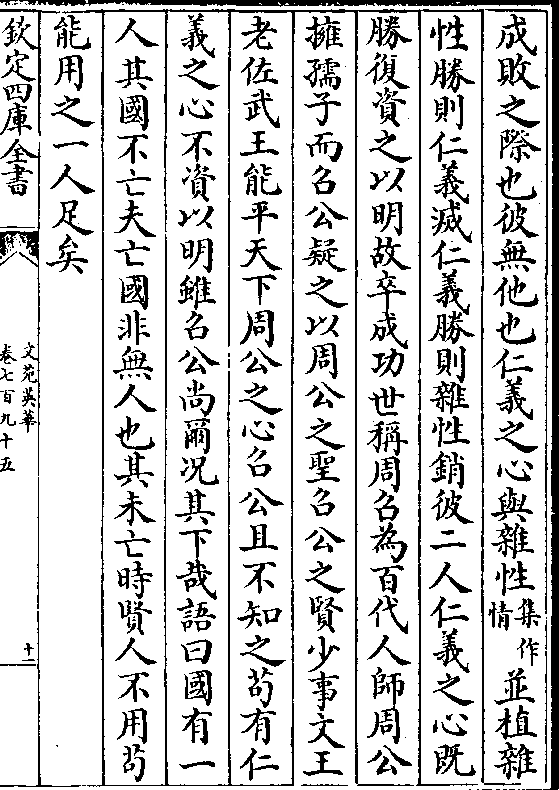 成敗之際也彼無他也仁義之心與雜性集作情並植雜
性勝則仁義滅仁義勝則雜性銷彼二人仁義之心既
勝復資之以明故卒成功世稱周召為百代人師周公
擁孺子而召公疑之以周公之聖召公之賢少事文王
老佐武王能平天下周公之心召公且不知之茍有仁
義之心不資以明雖召公尚爾况其下哉語曰國有一
人其國不亡夫亡國非無人也其未亡時賢人不用茍
能用之一人足矣
欽定四庫全書
文苑英華
卷七百九十五
十二